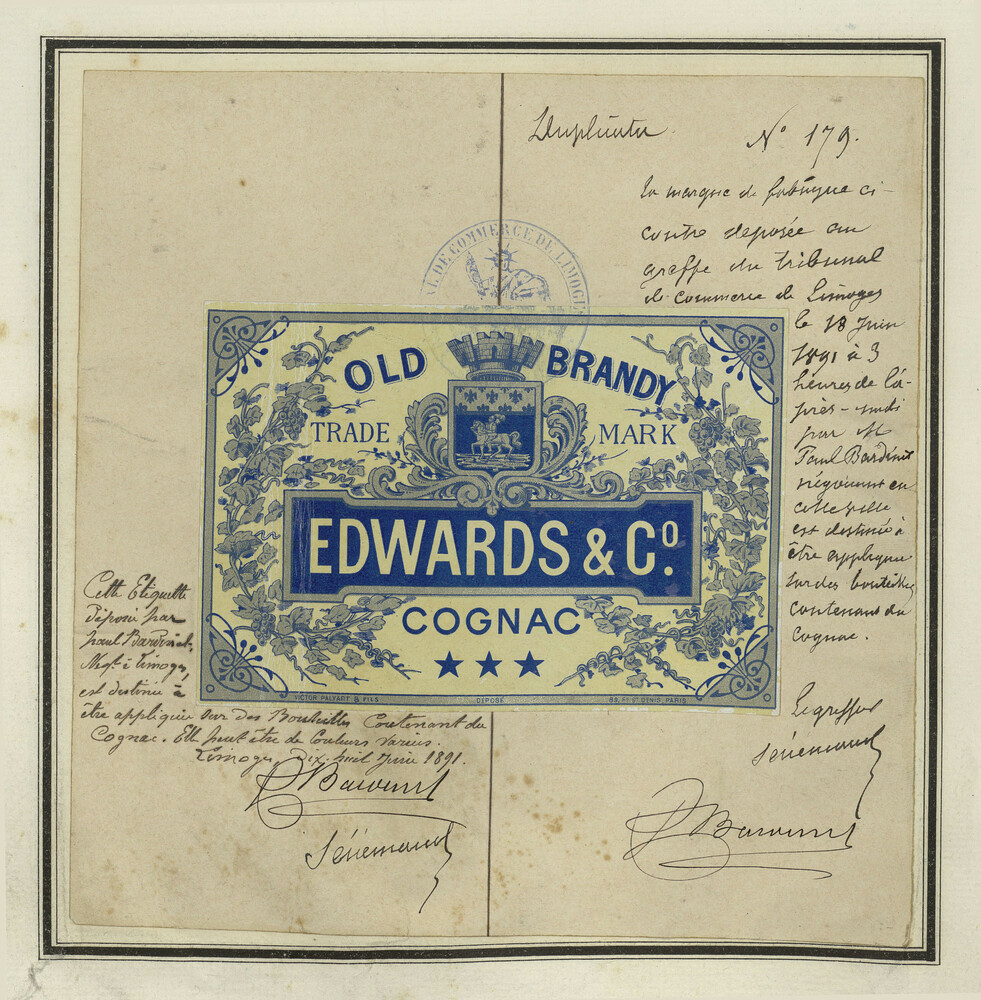 Duplicata
N° 179.
la marque de fabrique ci-
contre déposée au
greffe du tribunal
de commerce de Limoges
le 18 Juin
1891 à 3
heures de l'a-
près-midi
par M
Paul Bardinet
négociant en
cette ville
est destinée à
être appliquée
sur des bouteilles
contenant du
Cognac.
Le greffier
Sénemaud
PBardinet
L DE COMMERCE DE LIMOGES
OLD BRANDY
TRADE MARK
EDWARDS & Co.
COGNAC
VICTOR PALYART & FILS
DÉPOSÉ
PARIS
Cette Etiquette
déposée par
paul Bardinet,
Negt à Limoges,
est destinée à
être appliquée sur des Bouteilles Contenant du
Cognac. Elle peut être de Couleurs variées.
Limoges, dix-huit Juin 1891.
PBardinet
Sénemaud